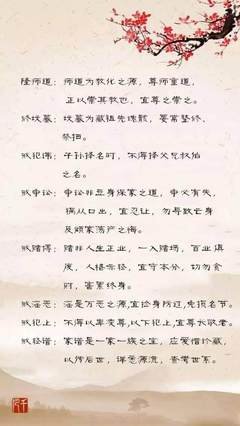 隆师道：师道为教化之源，尊师重道，
正以崇其教也，宜尊之崇之。
修坟墓：坟墓为藏祖先魂骸，要常登修，
祭祖。
戒犯讳：子孙择名时，不得择父兄叔伯
之名。
戒争讼：争讼非立身保家之道，争火有失，
祸从口出，宜忍让，勿导致亡身
及倾家荡产之悔。
戒赌博：赌非人生正业，一入赌场，百业俱
废，人格赤轻，宜守本分，切勿贪
财，害累终身。
戒淫恶：淫是万恶之源，宜捡身防过，免损名节。
戒犯上：不得以卑凌尊，以下犯上，宜尊长敬老。
戒轻谱：家谱是一家一族之宝，应爱惜珍藏，
以传后世，详悉源流，查考世系。